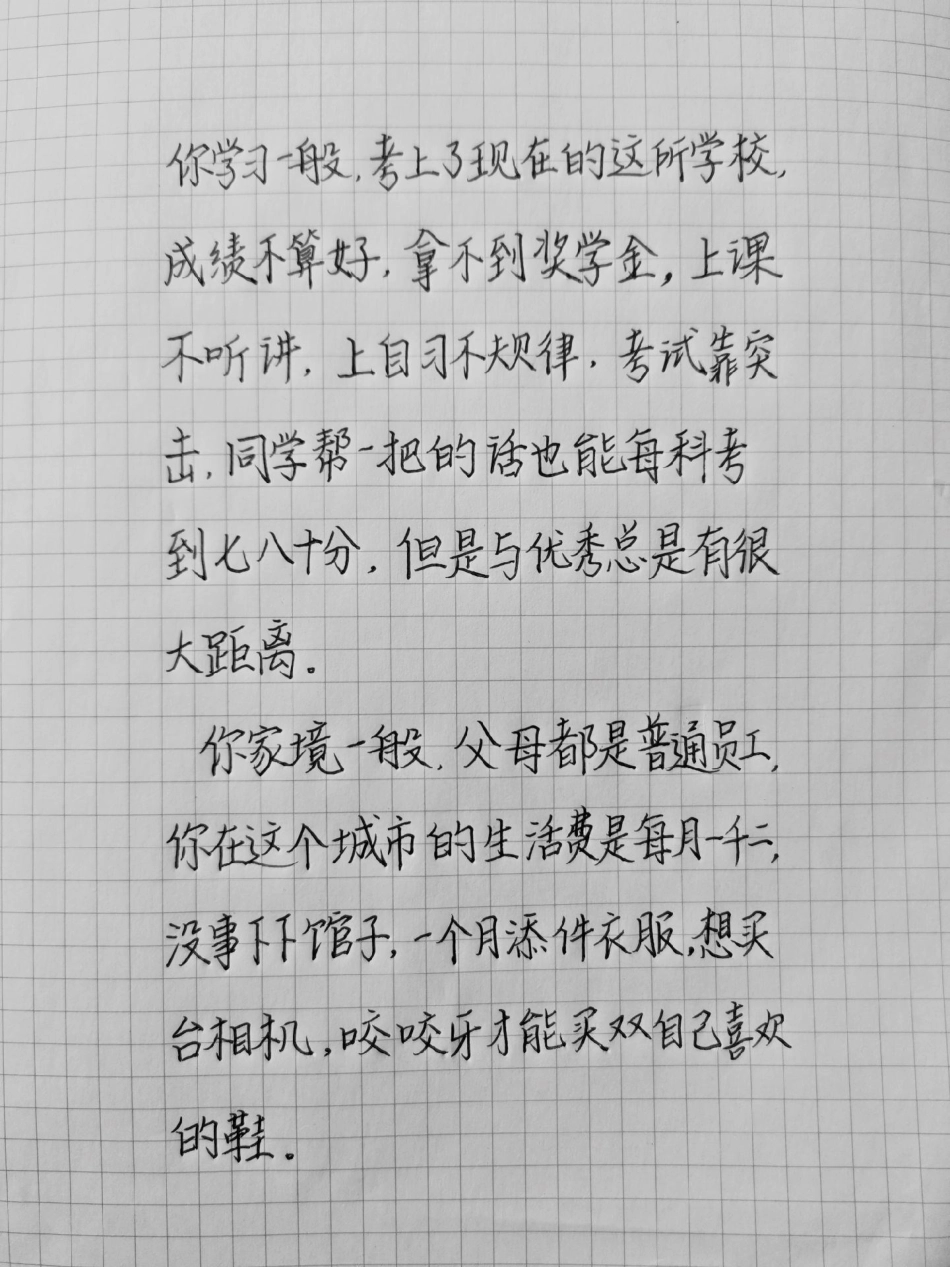 你学习一般,考上了现在的这所学校,
成绩不算好,拿不到奖学金,上课
不听讲,上自习不规律,考试靠突
击,同学帮一把的话也能每科考
到七八十分,但是与优秀总是有很
大距离。
你家境一般,父母都是普通员工,
你在这个城市的生活费是每月一千二,
没事下下馆子,一个月添件衣服,想买
台相机,咬咬牙才能买双自己喜欢
的鞋。